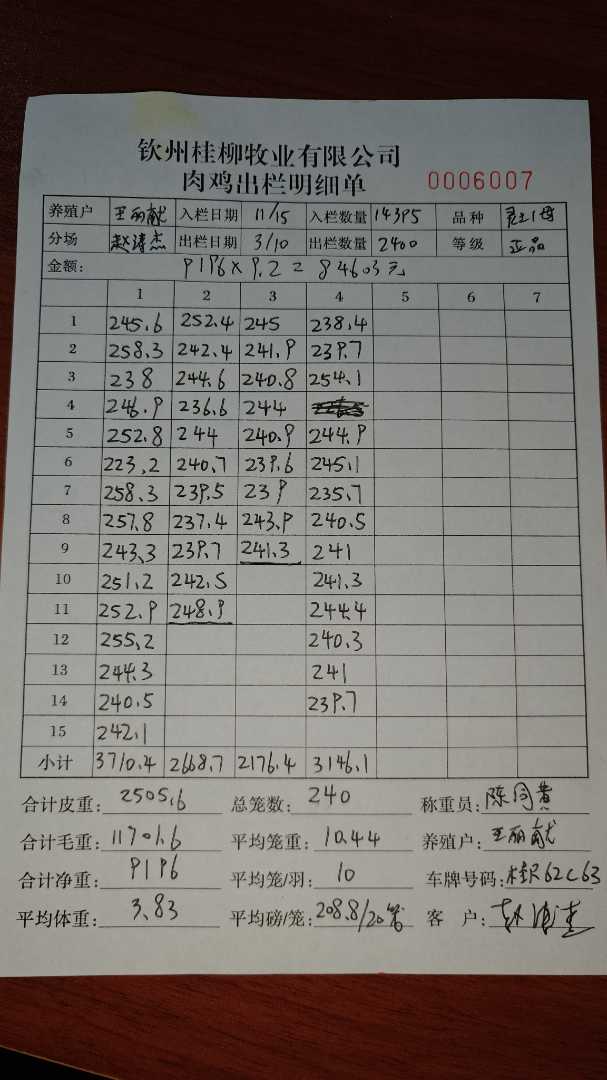 钦州桂柳牧业有限公司
肉鸡出栏明细单 0006007
养殖户 王丽献 入栏日期 11/15 入栏数量 14395 品种
分场 赵清杰 出栏日期 3/10 出栏数量 2400 等级 正品
金额: 9196×9.2=84603元
1 2 3 4 5 6 7
1 245.6 252.4 245 238.4
2 258.3 242.4 241.9 239.7
3 238 244.6 240.8 254.1
4 246.9 236.6 244
5 252.8 244 240.9 244.9
6 223.2 240.7 239.6 245.1
7 258.3 239.5 239 235.7
8 257.8 237.4 243.9 240.5
9 243.3 239.7 241.3 241
10 251.2 242.5 241.3
11 252.9 248.9 244.4
12 255.2 240.3
13 244.3 241
14 240.5 239.7
15 242.1
小计 3710.4 2668.7 2176.4 3146.1
合计皮重: 2505.6 总笼数: 240 称重员: 陈同贵
合计毛重: 11701.6 平均笼重: 10.44 养殖户: 王丽献
合计净重: 9196 平均笼/羽: 10 车牌号码: 桂R62C63
平均体重: 3.83 平均磅/笼: 208.8/20笼 客户: 赵清杰